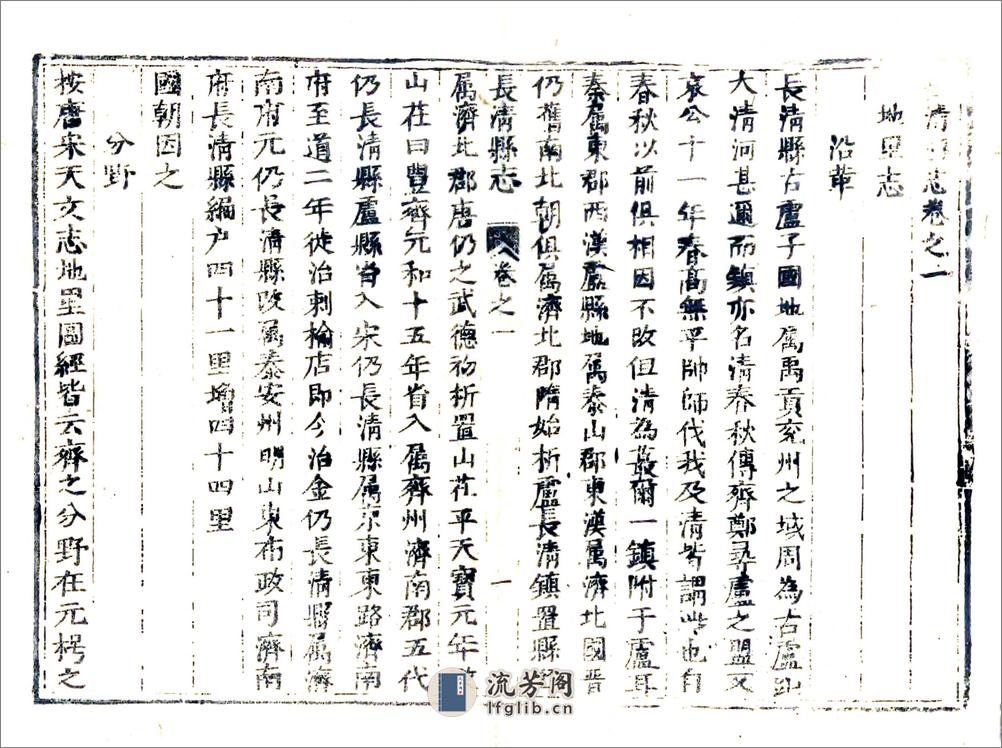 清縣志卷之一
地里志
沿革
長清縣古盧子國地属禹貢兖州之域周為古盧
大清河甚邇而鎮亦名清春秋傳齊鄭尋盧之盟又
哀公十一年春高無平帥師伐我及清皆謂此也自
春秋以前俱相因不改但清為蕞爾一鎮附于盧耳
秦属東郡西漢盧縣地属泰山郡東漢属濟北國晋
仍舊南北朝俱属濟北郡隋始析盧長清鎮置縣
長清縣志 卷之一 一
属濟北郡唐仍之武德初析置山茌平天寶元年
山茌曰豐齊元和十五年省入属齊州濟南郡五代
仍長清縣盧縣省入宋仍長清縣属京東東路濟南
府至道二年徙治刺榆店即今治金仍長清縣属濟
南府元仍長清縣改属泰安州明山東布政司濟南
府長清縣編户四十一里增四十四里
國朝因之
分野
按唐宋天文志地里圖經皆云齊之分野在元枵之
流芳阁
lfglib.cn